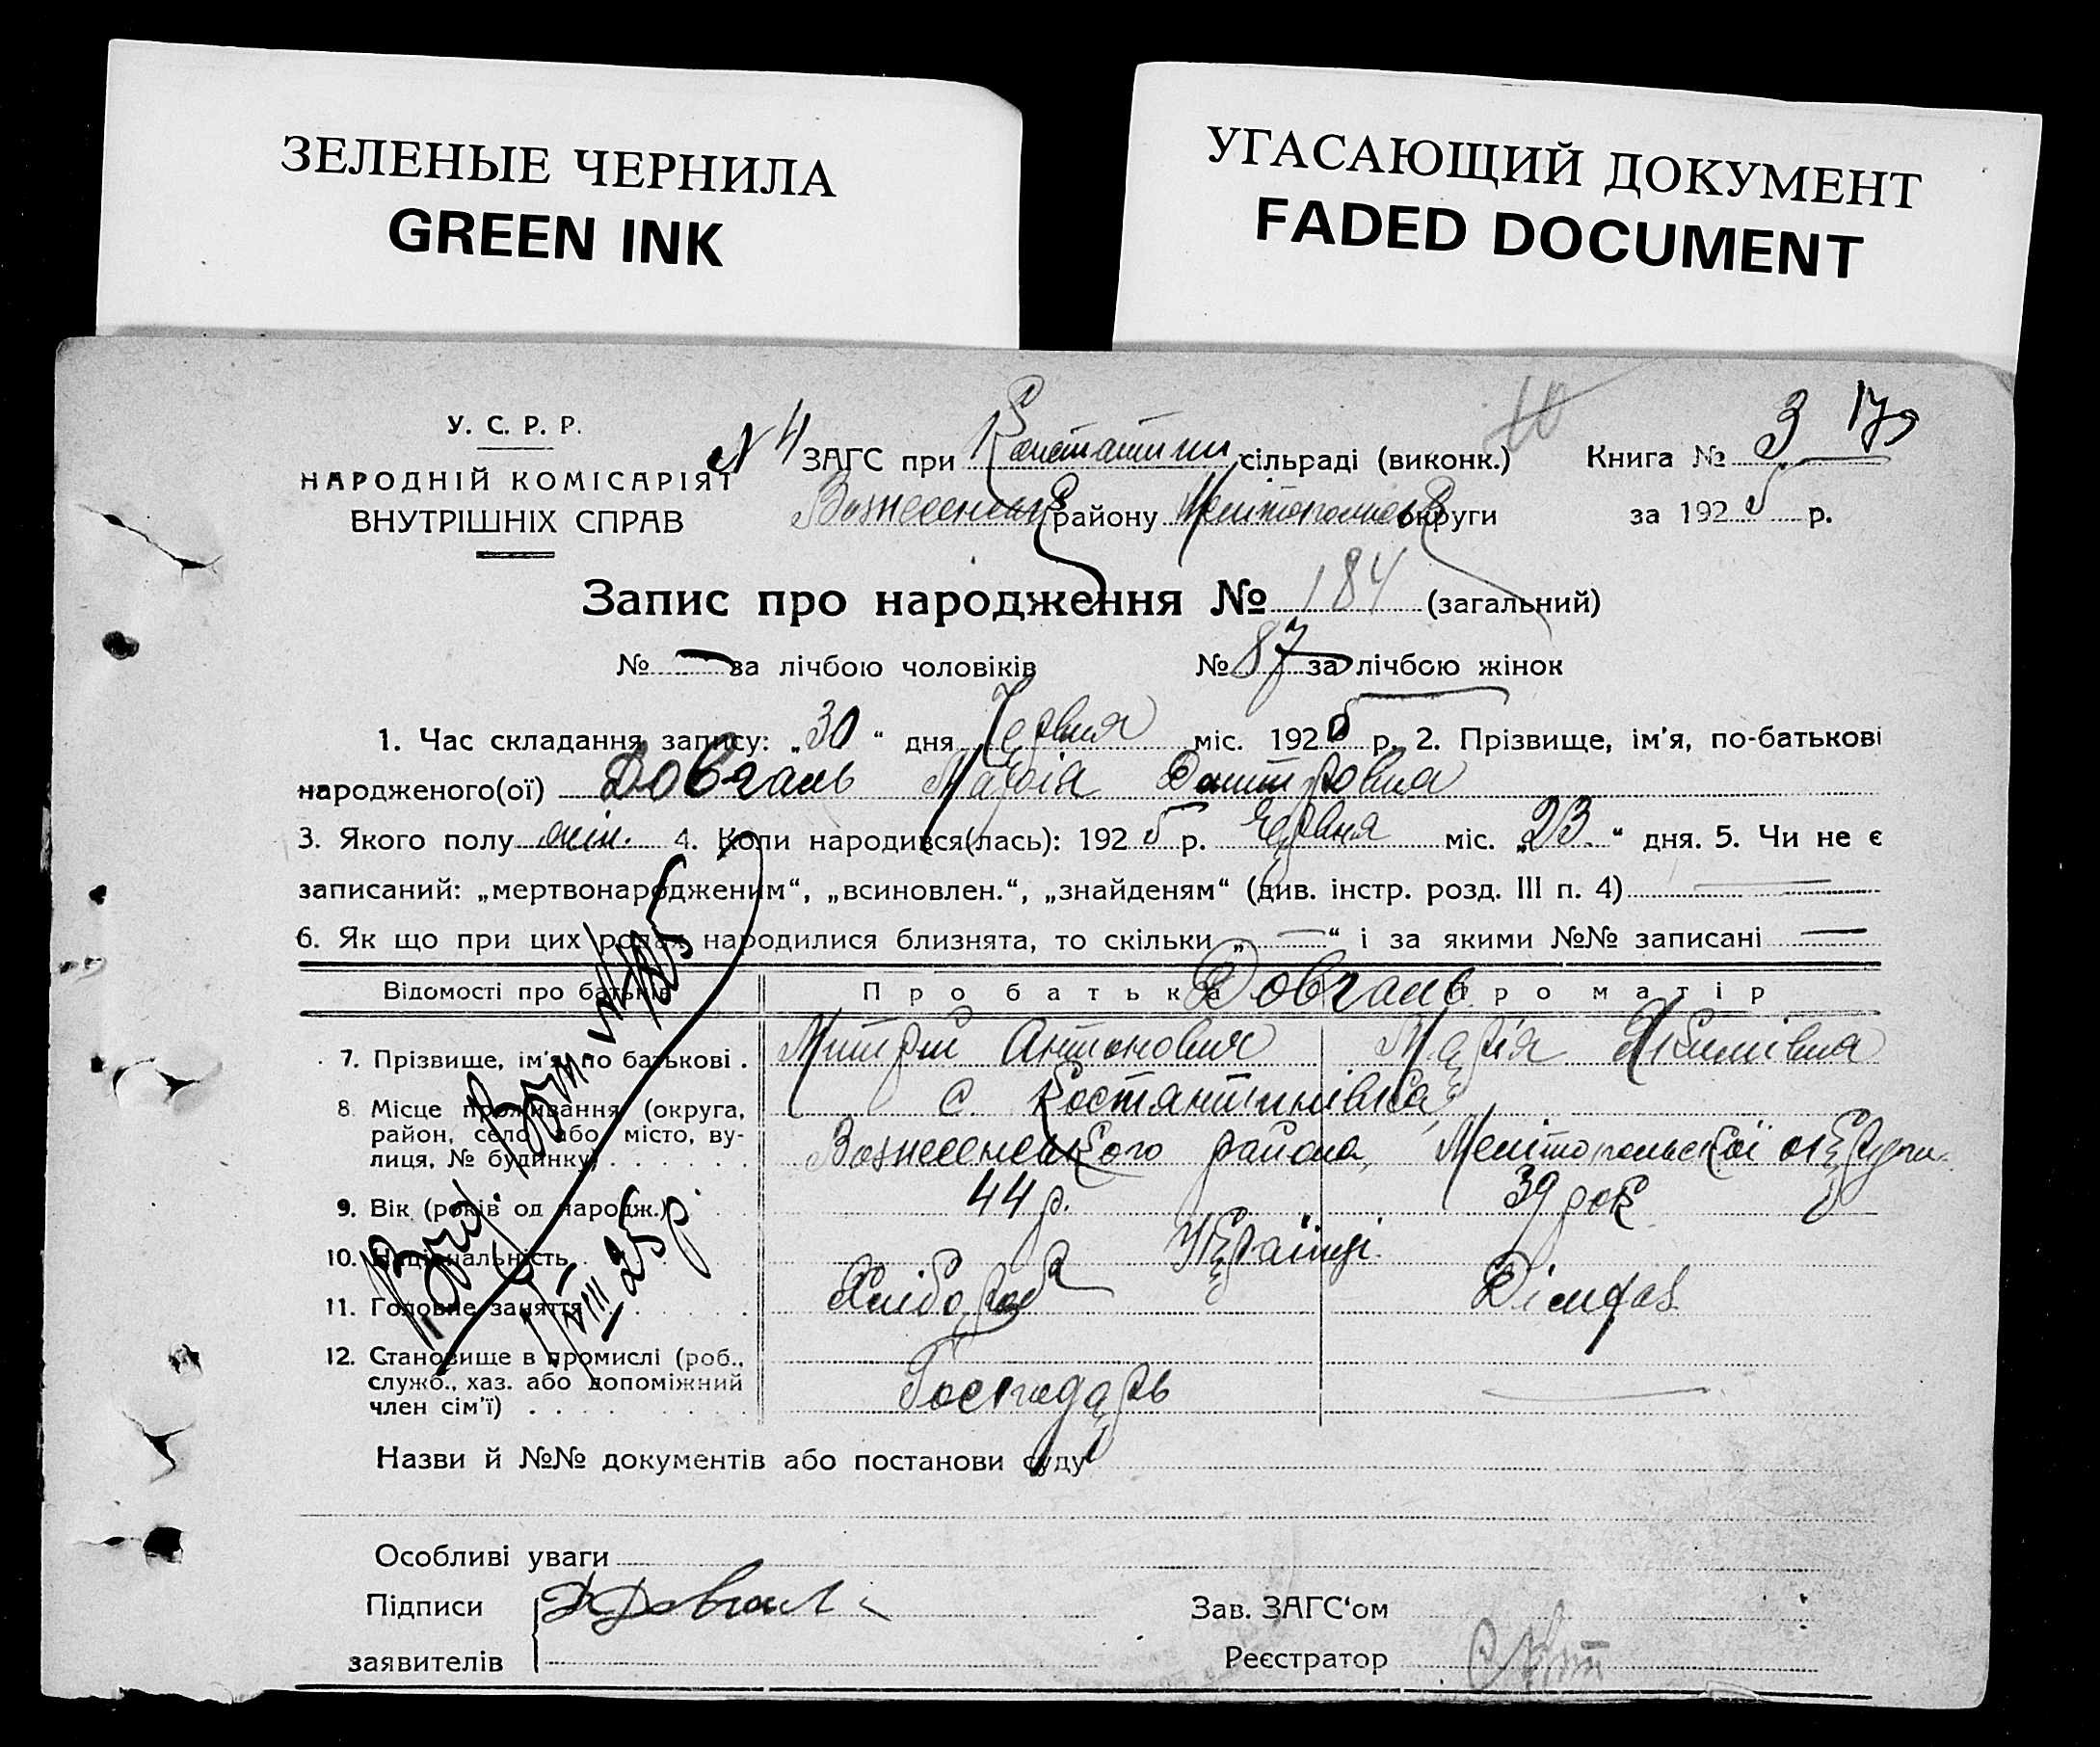 ЗЕЛЕНЫЕ ЧЕРНИЛА
GREEN INK
УГАСАЮЩИЙ ДОКУМЕНТ
FADED DOCUMENT
У. С. Р. Р.
НАРОДНІЙ КОМІСАРІЯТ
ВНУТРІШНІХ СПРАВ
N 4 ЗАГС при Констатин сільраді (виконк.)
Вознесенськ району Мелітопольськ округи
10
Книга № 3
за 1925 р.
Запис про народження № 184 (загальний)
№ — за лічбою чоловіків № 87 за лічбою жінок
1. Час складання запису: „30“ дня Червня міс. 1925 р. 2. Прізвище, ім'я, по-батькові
народженого(ої) Довгань Марія Дмитровна
3. Якого полу жін. 4. Коли народився(лась): 1925 р. Червня міс. „23.“ дня. 5. Чи не є
записаний: „мертвонародженим“, „всиновлен.“, „знайденям“ (див. інстр. розд. III п. 4) —
6. Як що при цих родах народилися близнята, то скільки „—“ і за якими №№ записані —
Відомості про батьків Про батька Про матір
Довгань
7. Прізвище, ім'я, по батькові . Митрій Антонович Марія Якимівна
8. Місце проживання (округа, район, село або місто, вулиця, № будинку) с. Костянтинівка,
Вознесенського района, Мелітопольської округи
9. Вік (років од народж.) 44 р. 39 рок
10. Національність Українці
11. Головне заняття Хлібороб Дімгос
12. Становище в промислі (роб., служб., хаз. або допоміжний член сім'ї) Господарь —
Назви й №№ документів або постанови суду
Особливі уваги
Підписи
заявителів
Зав. ЗАГС'ом
Реєстратор